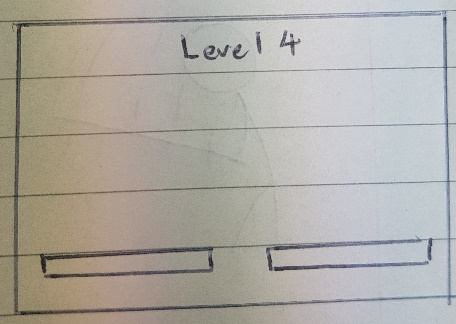 Level 4